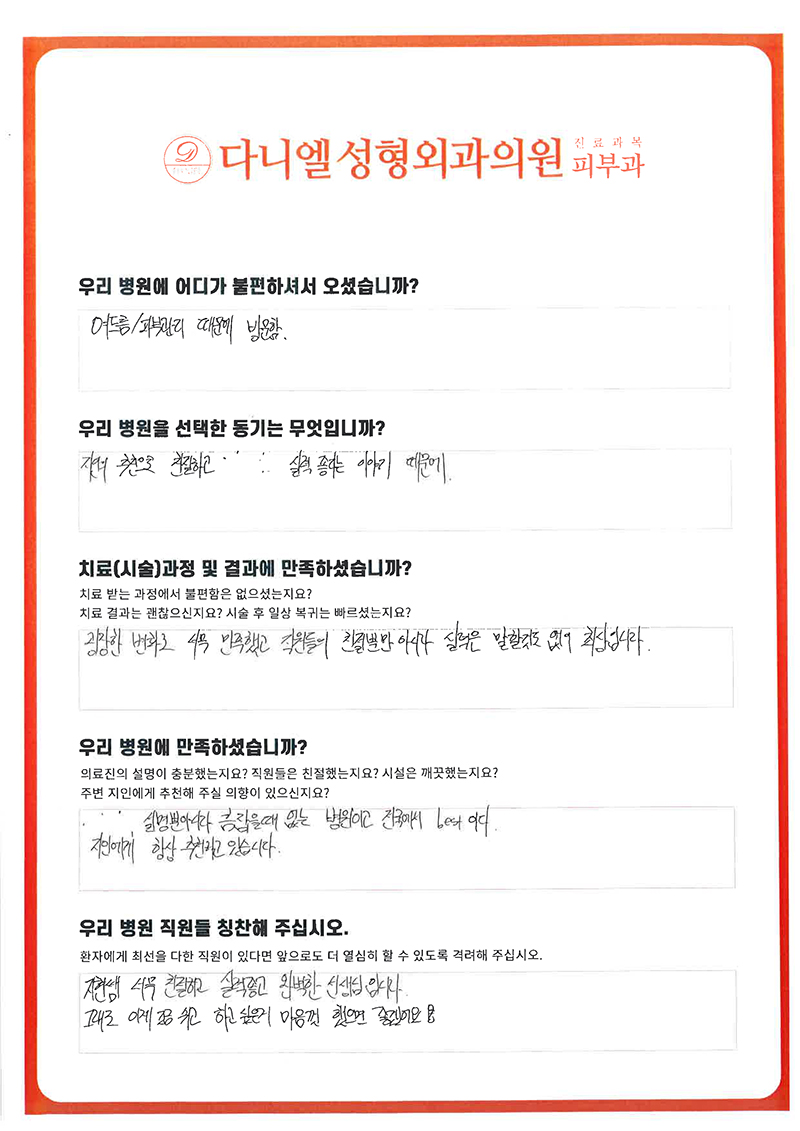 다니엘성형외과의원
진료과목
피부과
우리 병원에 어디가 불편하셔서 오셨습니까?
여드름/피부관리 때문에 방문함.
우리 병원을 선택한 동기는 무엇입니까?
추천으로 친절하고 실력 좋다는 이야기 때문에.
치료(시술)과정 및 결과에 만족하셨습니까?
치료 받는 과정에서 불편함은 없으셨는지요?
치료 결과는 괜찮으신지요? 시술 후 일상 복귀는 빠르셨는지요?
굉장한 변화로 너무 만족했고 직원들의 친절뿐만 아니라 실력은 말할것도 없이 최상입니다.
우리 병원에 만족하셨습니까?
의료진의 설명이 충분했는지요? 직원들은 친절했는지요? 시설은 깨끗했는지요?
주변 지인에게 추천해 주실 의향이 있으신지요?
설명뿐아니라 흠잡을때 없는 병원이고 전국에서 best 이다.
지인에게 항상 추천하고 있습니다.
우리 병원 직원들 칭찬해 주십시오.
환자에게 최선을 다한 직원이 있다면 앞으로도 더 열심히 할 수 있도록 격려해 주십시오.
너무 친절하고 실력좋고 완벽한 선생님 입니다.
그래도 이제 쉬고 하고 싶은거 마음껏 했으면 좋겠어요